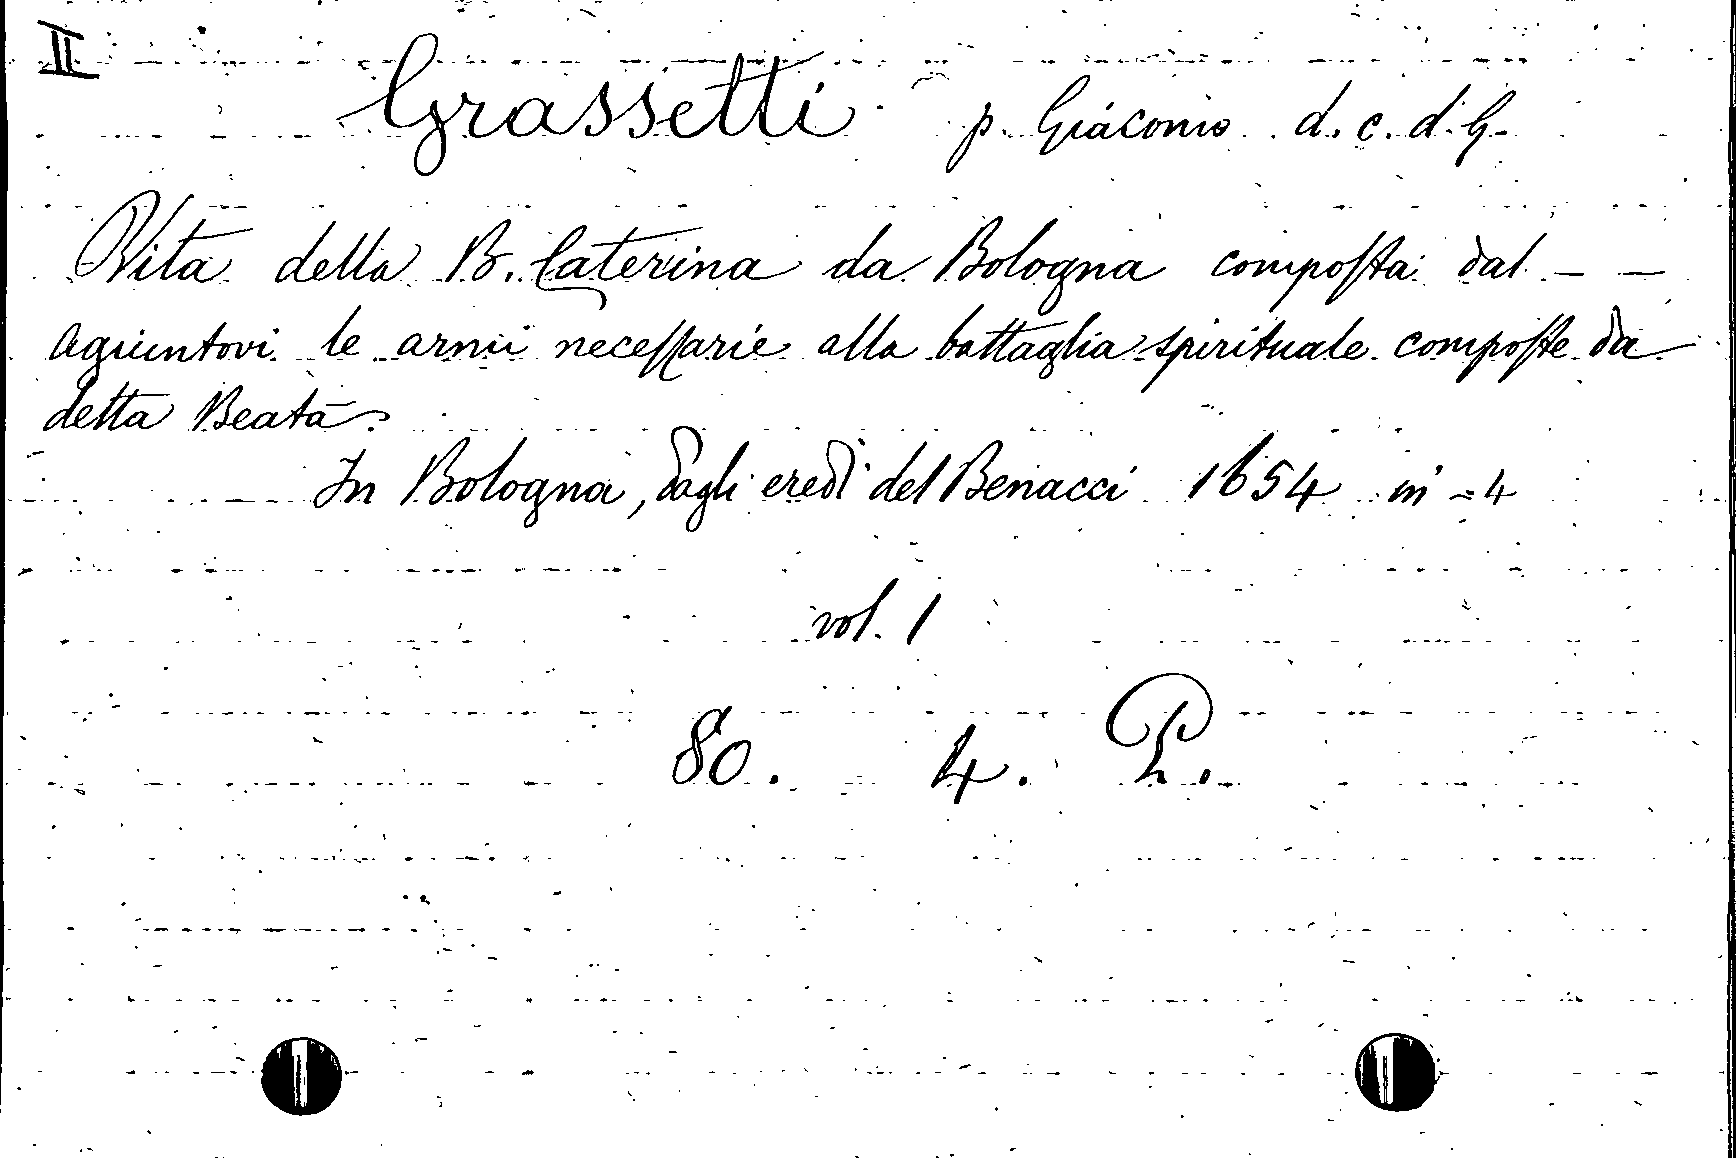 II
Grassetti p. Giácomo d. c. d. G.
Vita della B. Caterina da Bologna composta dal – –
agiuntovi le armi necessarie alla battaglia spirituale composte da
detta Beata.
In Bologna, dagli eredi del Benacci 1654 in-4
vol. 1
80. 4.